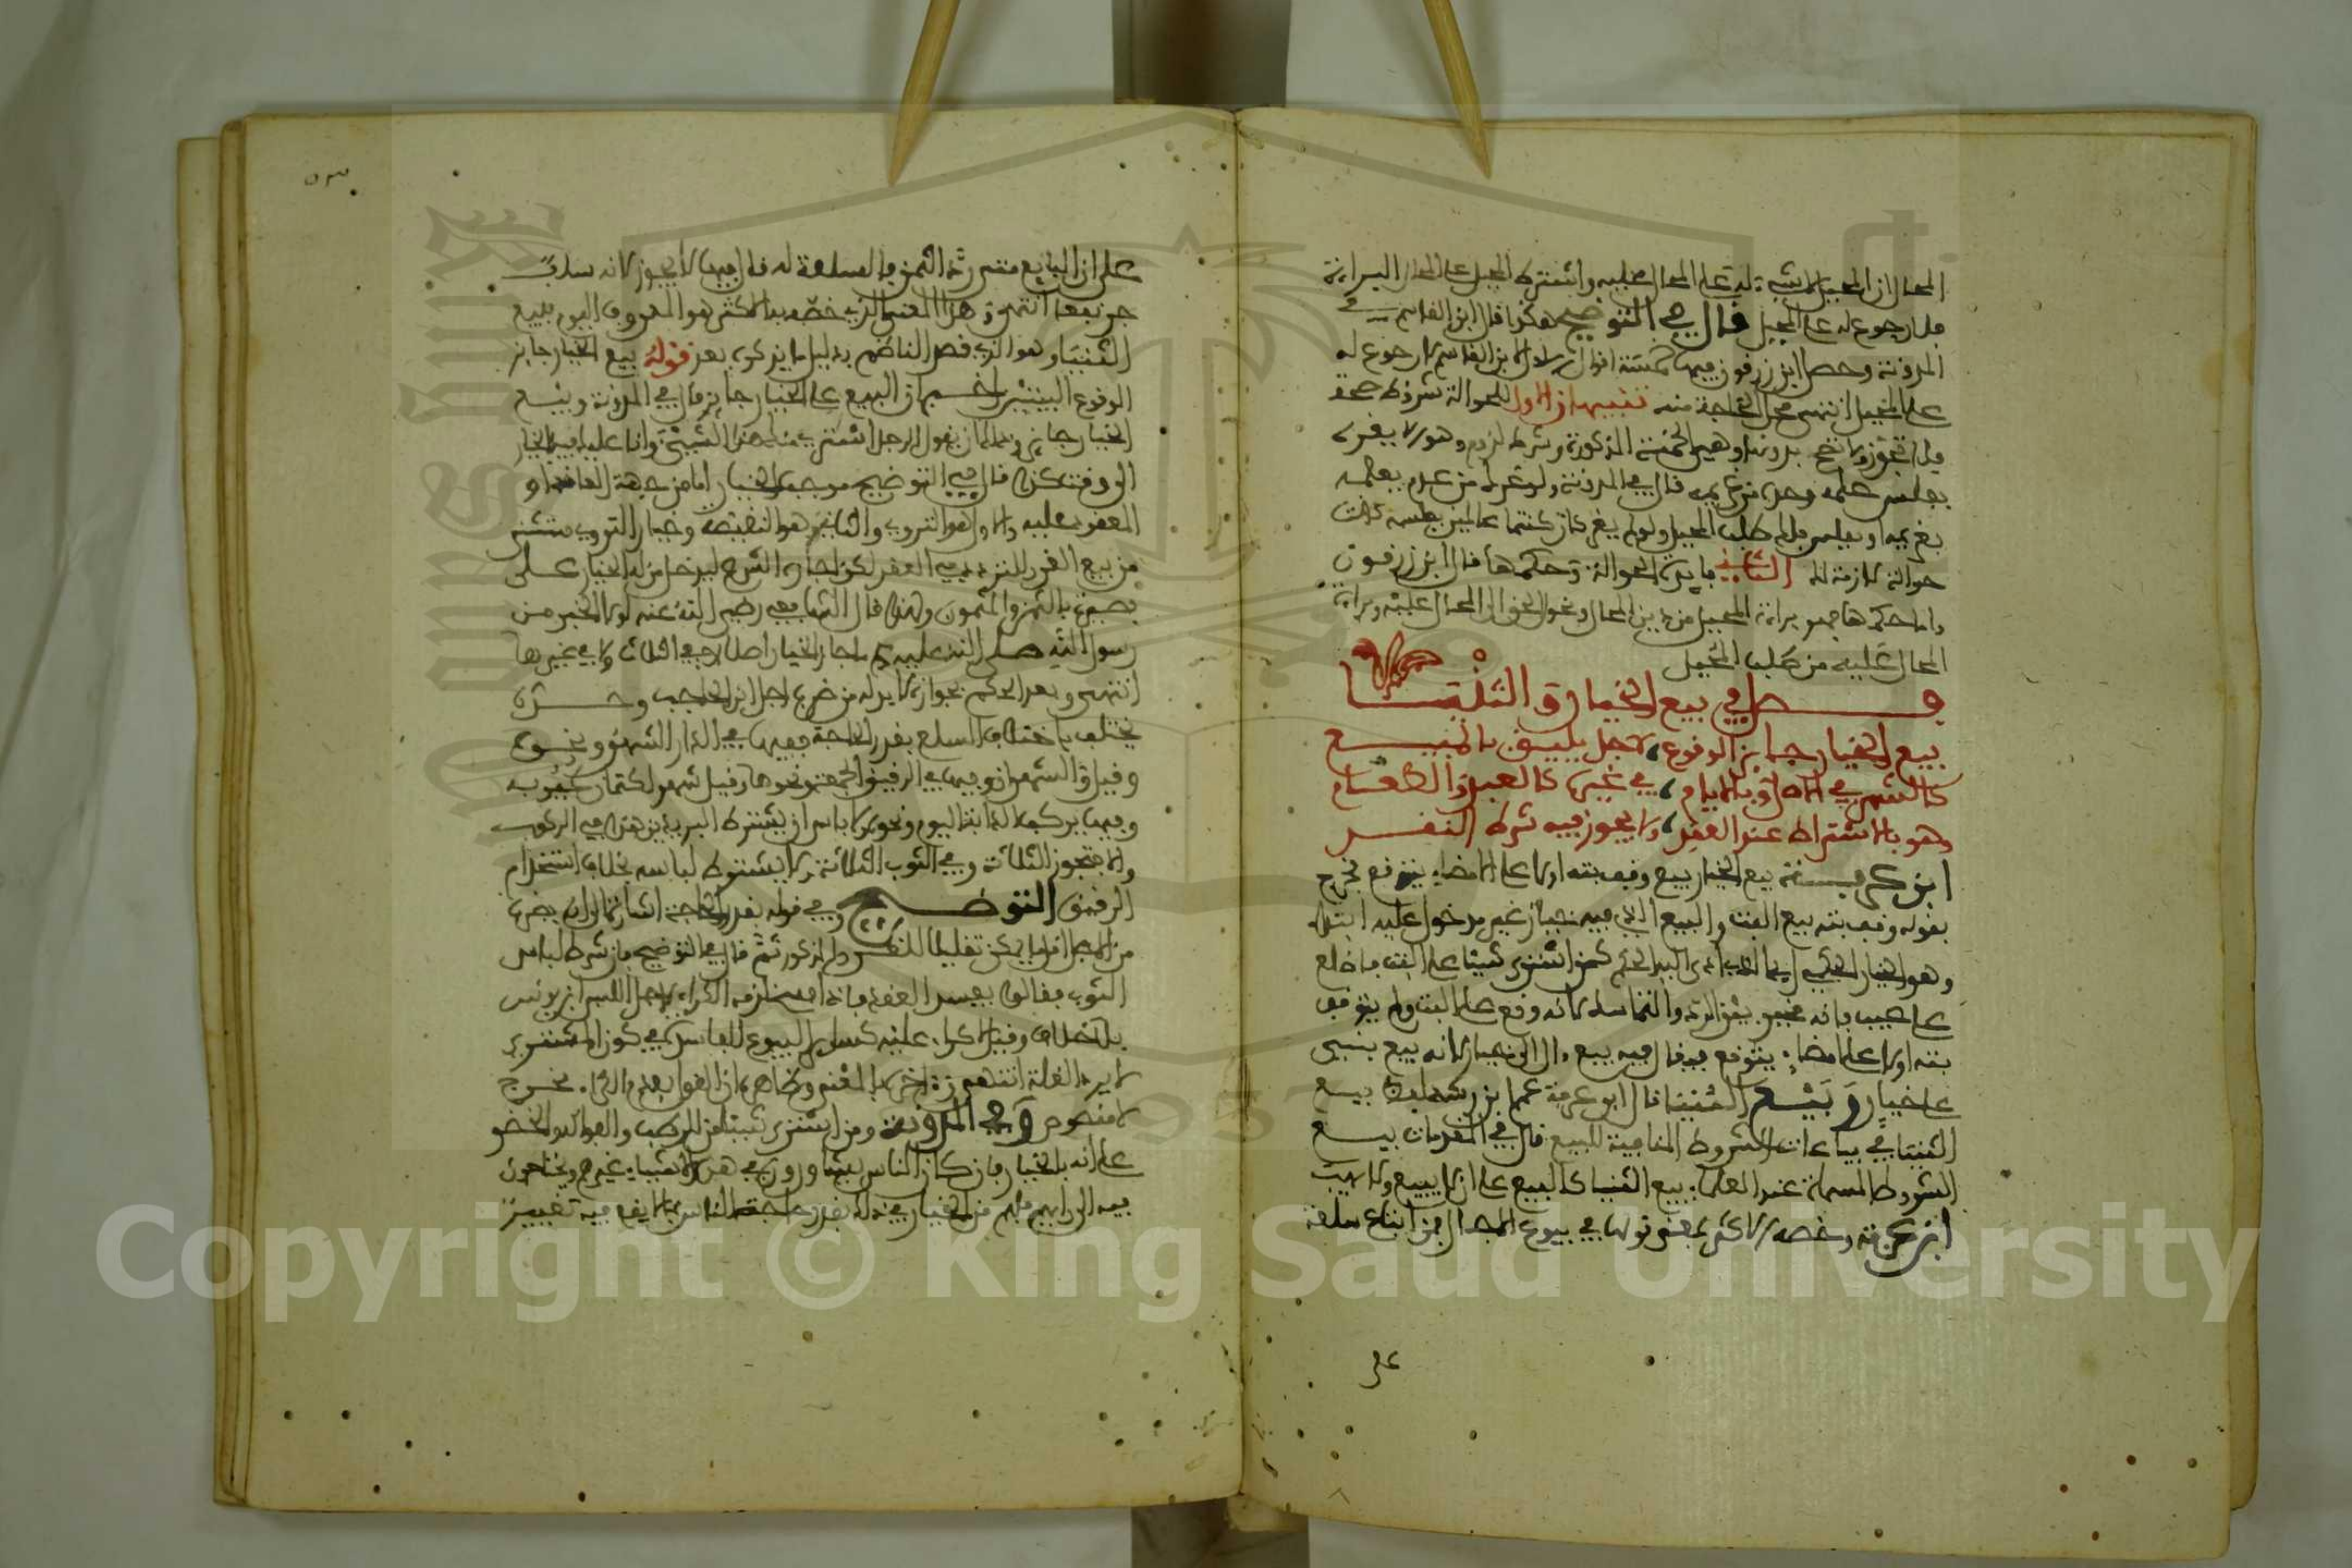 المحال ان المحيل لا شيء له على المحال عليه واشترط المحيل على المحال البراءة
فلا رجوع له على المحيل قال في التوضيح هكذا قال ابن القاسم في
المدونة وحصل ابن زرقون فيها خمسة اقوال الاول لابن القاسم لا رجوع له
على المحيل انتهى محل الحاجة منه تنبيهان الاول للحوالة شروط صحة
فلا تجوز ولا تصح بدونها وهي الخمسة المذكورة وشرط لزوم وهو الا يغره
بفلس علمه وحده من غريمه قال في المدونة ولو غرك من عدم يعلمه
بغريمه او بفلس فلك طلب المحيل ولو لم يغرك او كنتما عالمين بفلسه كانت
حوالة لازمة لك الثاني فايدة الحوالة وحكمها قال ابن زرقون
واما حكمها فهو براءة المحيل من دين المحال وتحول الحق الى المحال عليه وبراءة
المحال عليه من طلب المحيل
فصل في بيع الخيار والثنيا
بيع الخيار جايز الوقوع لاجل يليق بالمبيع
كالشهر في الاصل وبالايام في غيره كالعبد والطعام
وهو بالاشتراط عند العقد ولا يجوز فيه شرط النقد
ابن عرفة بيع الخيار بيع وقف بته اولا على امضاء يتوقع فخرج
بقوله وقف بته بيع البت والبيع الذي فيه خيار غير مدخول عليه ابتداء
وهو الخيار الحكمي اي ما ادى اليه الحكم كمن اشترى شيئا على البت فاطلع
على عيب فانه مخير بين الرد والتماسك لانه وقع على البت ولم يتوقف
بته اولا على امضاء يتوقع فيقال فيه بيع ءال الى خيار لانه بيع بني
على خيار وبيع الثنيا قال ابن عرفة عما ابن رشد لفظ بيع
الثنيا في بياعات الشروط المنافية للبيع قال في المقدمات بيع
الشروط المسماة عند العلماء بيع الثنيا كالبيع على ان لا يبيع ولا يهب
ابن عرفة وخصه الاكثر بمعنى قولها في بيوع الاجال من ابتاع سلعة
عر
٥٣
على ان البايع متى رد الثمن فالسلعة له قال فيها لا يجوز لانه سلف
جر نفعا انتهى وهذا المعنى الذي خصه به الاكثر هو المعروف اليوم ببيع
الثنيا وهو الذي قصد الناظم بدليل ما يذكره بعد قوله بيع الخيار جايز
الوقوع البيتين اخبر ان البيع على الخيار جايز قال في المدونة وبيع
الخيار جايز وذلك ان يقول الرجل اشتري منك هذا الشيء وانا عليك فيه بالخيار
الى وقت كذا قال في التوضيح موجب الخيار اما من جهة العاقد او
المعقود عليه والاول هو التروي والثاني هو النقيصة وخيار التروي مستثنى
من بيع الغرر للتردد في العقد لكن اجازه الشرع ليدخل من له الخيار على
بصيرة بالثمن والمثمون ولهذا قال الشافعي رضي الله عنه لولا الخبر من
رسول الله صلى الله عليه وسلم ما جاز الخيار اصلا لا في الثلاث ولا في غيرها
انتهى وبعد الحكم بجوازه لا بد له من ضرب اجل ابن الحاجب وحده
يختلف باختلاف السلع بقدر الحاجة ففيها في الدار الشهر ونحوه
وقيل والشهران وفيها في الرقيق الجمعة ونحوها وقيل شهر لكتمان عيوبه
وفيها يركب الدابة اليوم ونحوه ولا باس ان يشترط البريد ونحوه في الركوب
والا فتجوز الثلاثة وفي الثوب الثلاثة ولا يشترط لباسه بخلاف استخدام
الرقيق التوضيح وفي قوله بقدر الحاجة اشارة الى انه يضرب
من الاجل اقل ما يمكن تقليلا للغرر المذكور ثم قال في التوضيح فان شرط لباس
الثوب فقالوا يفسد العقد فاذا فسخ لزمه الكراء لاجل اللبس ابن يونس
بلا خلاف وقيل لا كراء عليه كساير البيوع الفاسدة في كون المشتري
لا يرد الغلة انتهى
لا منصوص وفي المدونة ومن اشترى شيئا من الرطب والفواكه الخضر
على انه بالخيار فان كان الناس يشاورون في هذه الاشياء غيرهم ويحتاجون
فيه الى رايهم فلهم من الخيار في ذلك بقدر حاجة الناس مما لا يقع فيه تغيير